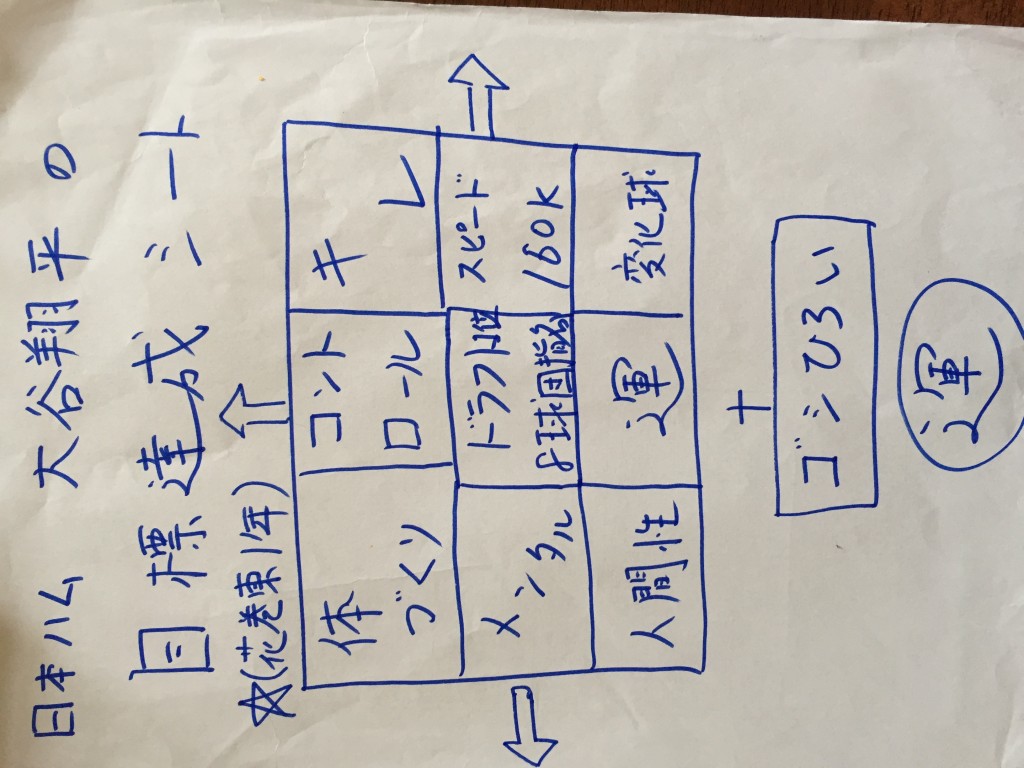 日本ハム 大谷翔平の
目標達成シート
☆(花巻東1年)
体
づくり
コント
ロール
キレ
メンタル
ドラフト1位
8球団指名
スピード
160k
人間性
運
変化球
+
ゴミひろい
運